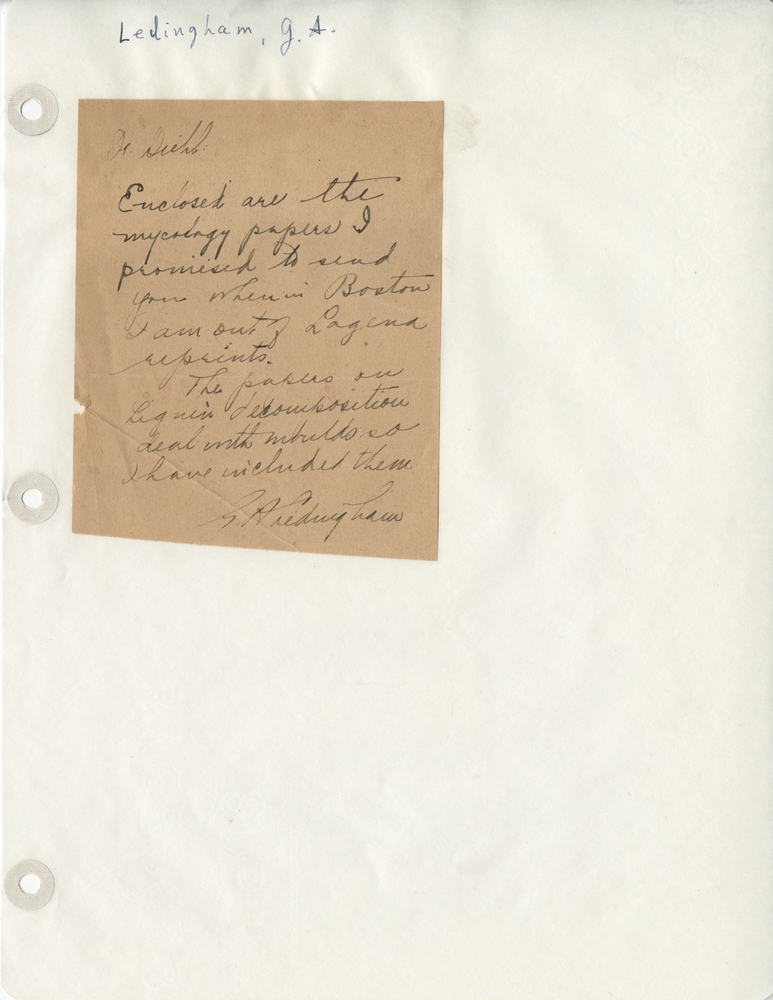 Ledingham, G. A.
Dr. Diehl.
Enclosed are the
mycology papers I
promised to send
you when in Boston
I am out of Lagena
reprints.
The papers on
Lignin decomposition
deal with moulds so
I have included them
G A Ledingham